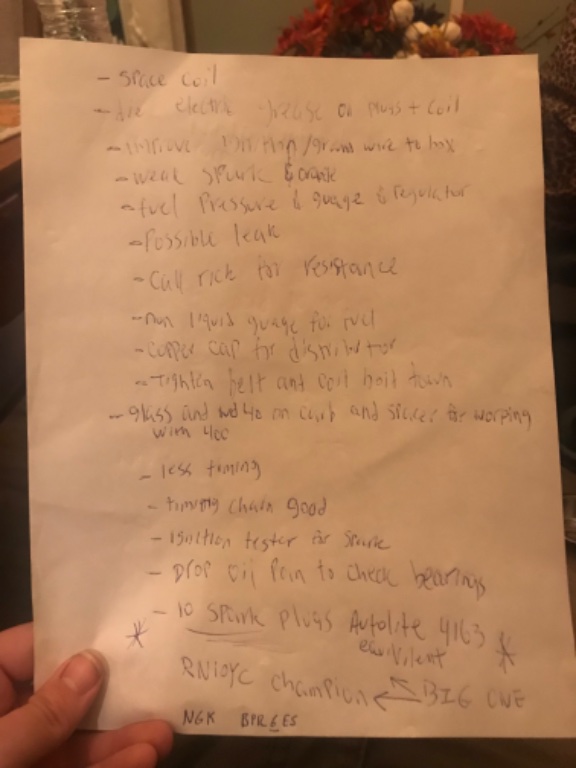 - Space coil
- electric grease on plugs + coil
- improve / ground wire to box
- weak spark & crank
- fuel Pressure & guage & regulator
- Possible leak
- Call rick for resistance
- non liquid guage for fuel
- Copper cap for distributor
- Tighten belt and coil
- glass and wd40 on carb and spacer for worping
with 400
- less timing
- timing chain good
- Ignition tester for spark
- Drop oil Pan to check bearings
- 10 Spark plugs Autolite 4163
equivilent
RN10YC Champion ← BIG ONE
NGK BPR6ES